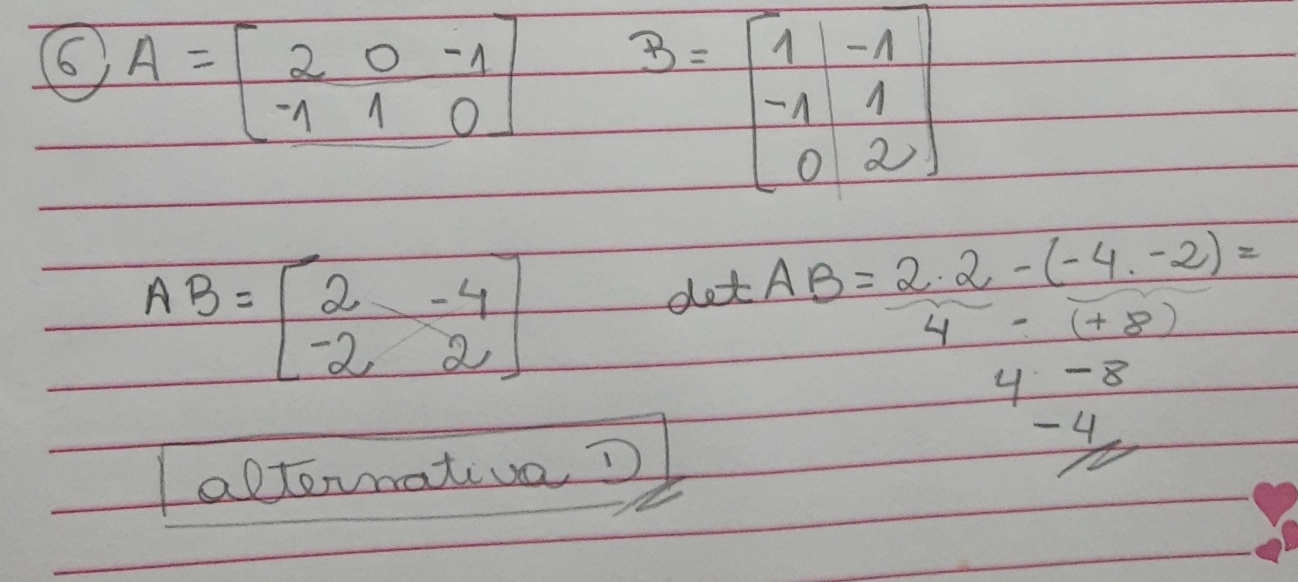 6) A = [ 2 0 -1 B = [ 1 -1
-1 1 0 ] -1 1
0 2 ]
AB = [ 2 -4 det AB = 2.2 - (-4.-2) =
-2 2 ] 4 - (+8)
4 - 8
-4
alternativa D